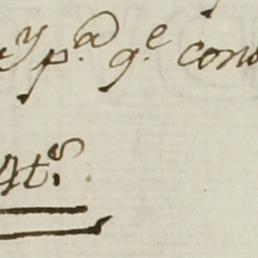 y p.a q.e cons
4t.s